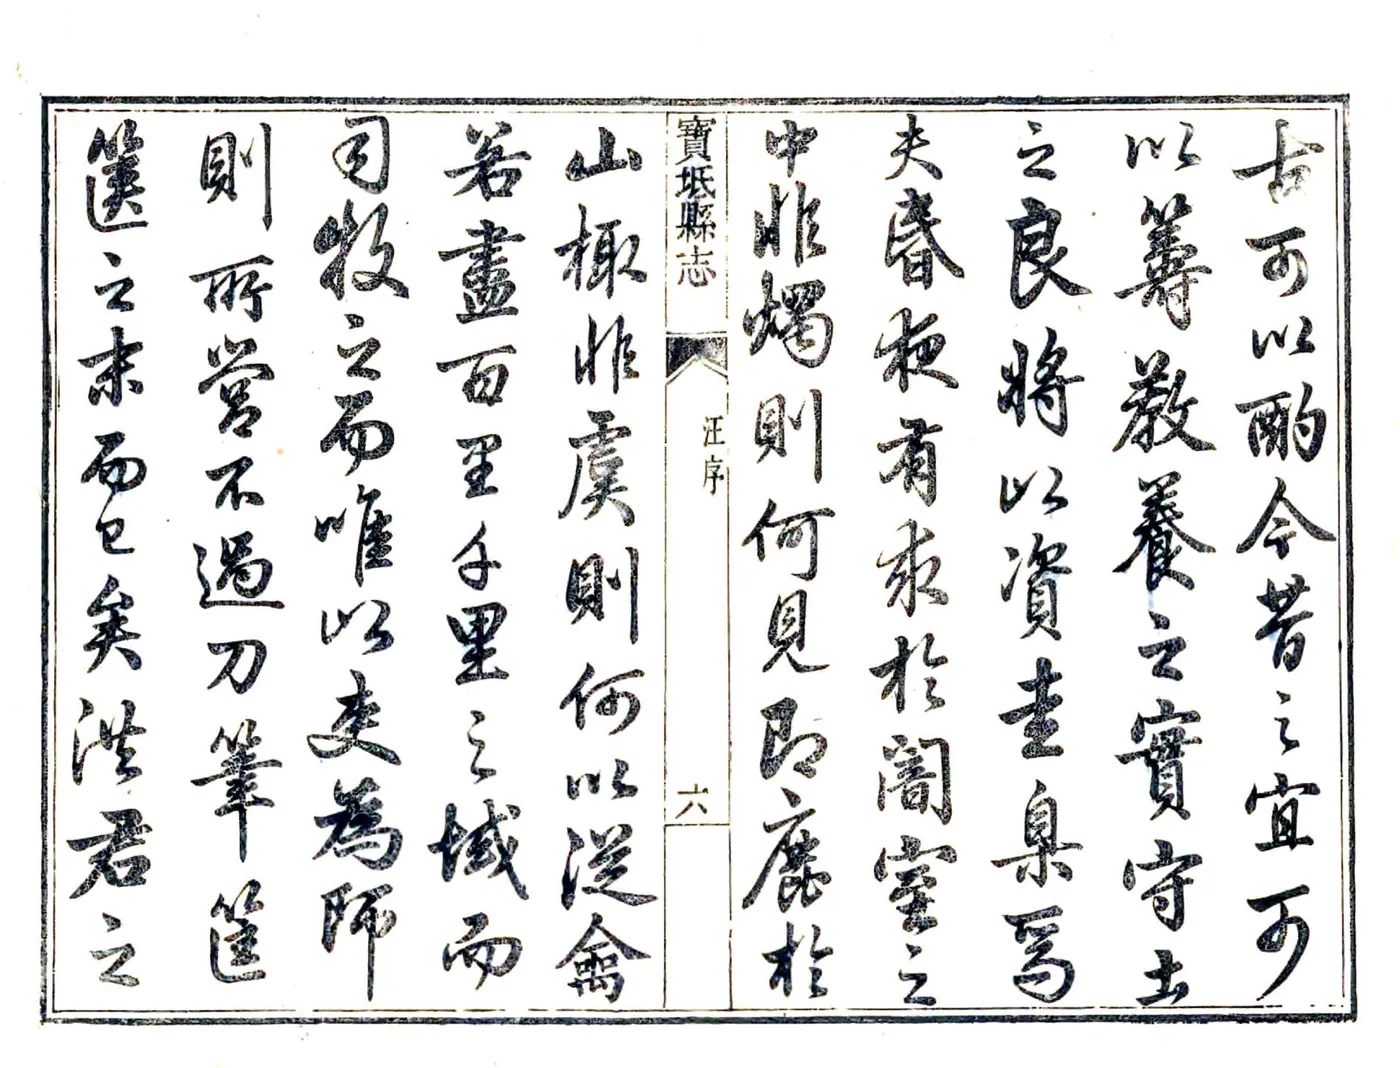 古可以酌今昔之宜可
以籌教養之實守土
之良將以資圭臬焉
夫昏夜有求於闇室之
中非燭則何見即鹿於
寶坻縣志
汪序
六
山非虞則何以從禽
若盡百里千里之域而
司牧之而唯以吏為師
則所營不過刀筆筐
篋之末而已矣洪君之